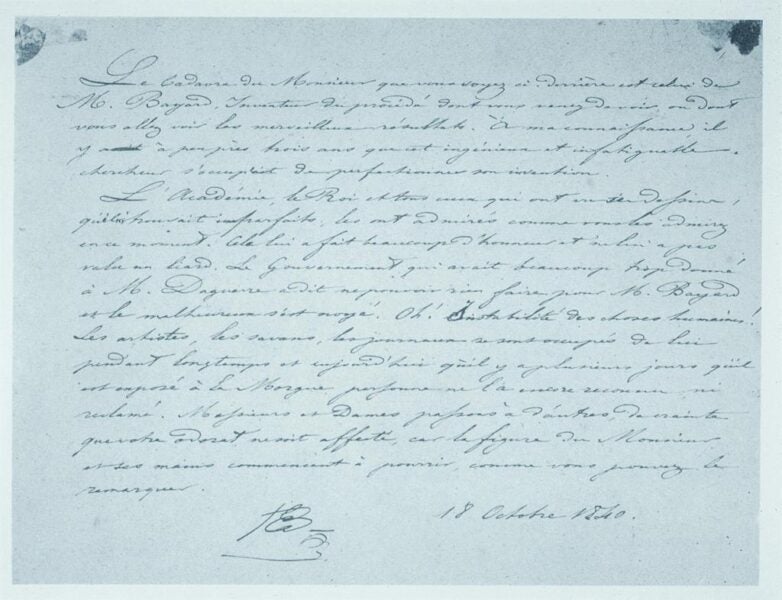 Le Cadavre du Monsieur que vous voyez ci derrière est celui de
M. Bayard, Inventeur du procédé dont vous venez de voir, ou dont
vous allez voir les merveilleux résultats. À ma connaissance, il
y a à peu près trois ans que cet ingénieux et infatiguable
chercheur s'occupait de perfectionner son invention.
L'Académie, le Roi et tous ceux qui ont vu ses dessins,
que lui trouvait imparfaits, les ont admirés comme vous les admirez
en ce moment. Cela lui a fait beaucoup d'honneur et ne lui a pas
valu un liard. Le Gouvernement, qui avait beaucoup trop donné
à M. Daguerre a dit ne pouvoir rien faire pour M. Bayard
et le malheureux s'est noyé. Oh! Instabilité des choses humaines!
Les artistes, les savans, les journaux se sont occupés de lui
pendant longtemps et aujourd'hui qu'il y a plusieurs jours qu'il
est exposé à la Morgue personne ne l'a encore reconnu, ni
reclamé. Messieurs et Dames passons à d'autres, de crainte
que votre odorat ne soit affecté, car la figure du Monsieur
et ses mains commencent à pourrir, comme vous pouvez le
remarquer.
HB
18 Octobre 1840.